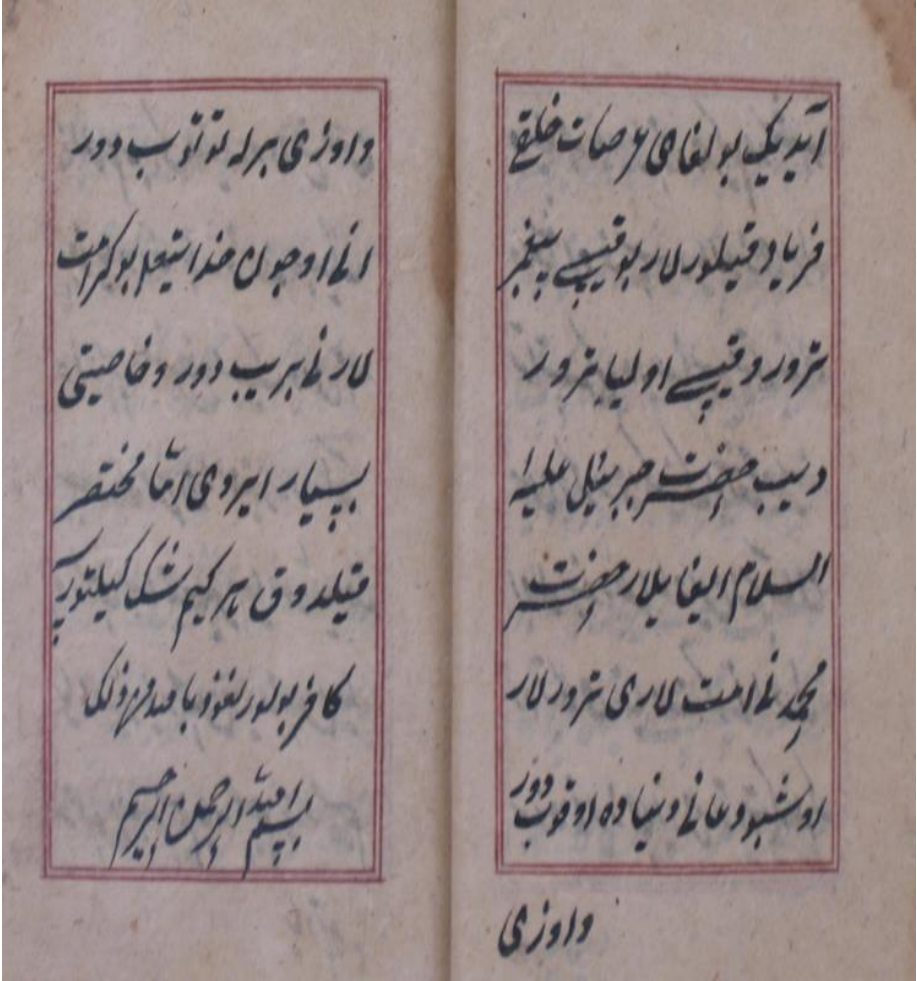 آیدیک بولغای عرصات خلقی
فریاد قیلورلار بو قیسی پیغمبر
ترور و قیسی اولیا ترور
دیب حضرت جبرئیل علیه
السلام ایغایلار حضرت
محمد نی امت لاری ترورلار
اوشبو دعانی دنیاده اوقوب دور
و اوزی
و اوزی برله توتوب دور
انی اوچون خدایتعالی بو کرامت
لارنی بریب دور و خاصیتی
بسیار ایردی اما مختصر
قیلدوق هر کیم شک کیلتورسه
کافر بولور نعوذ بالله من ذلک
بسم الله الرحمن الرحیم